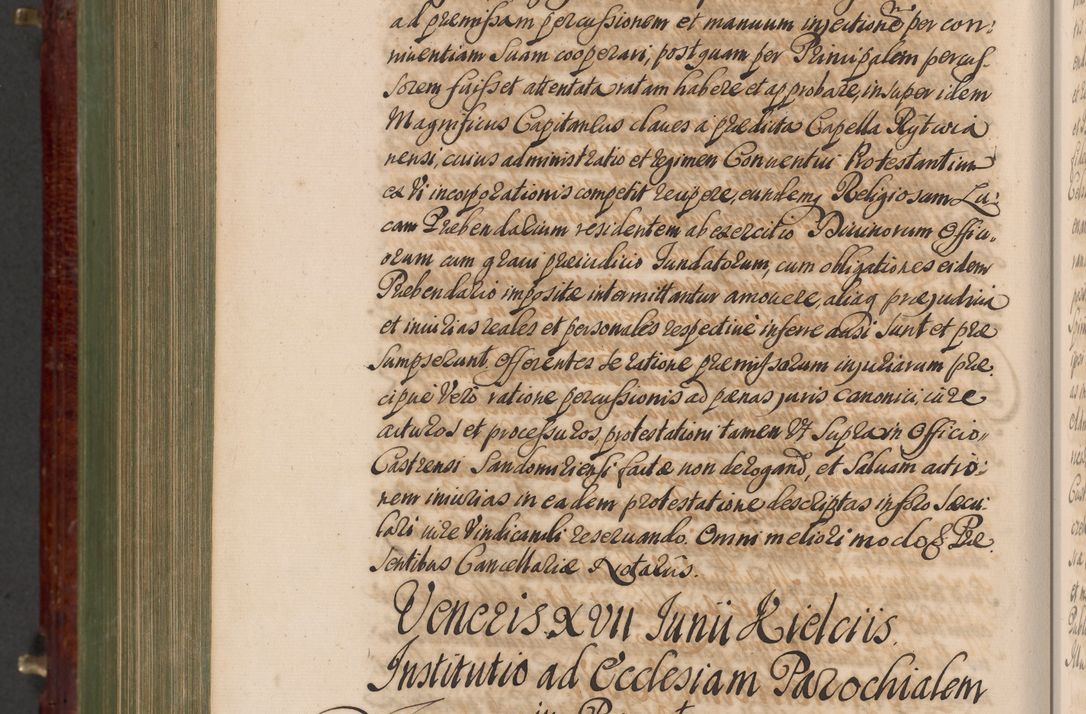 ad præmissam percussionem et manuum injectionem per con:
niuentiam suam cooperari, postquam per Principalem percus
sorem fuisset attentata ratam habere et approbare, insuper idem
Magnificus Capitaneus claues a prædicta Capella Rytwia
nensi, cuius administratio et regimen Conuentui Protestantium
ex vi incorporationis competit recipere, eundemq Religiosum Lu:
cam Præbendarium residentem ab exercitio Diuinorum Offici„
orum cum graui præiudicio fundatorum, cum obligationes eidem
Præbendario impositæ intermittantur amouere, aliaq præjudicia
et iniurias reales et personales respectiuè inferre ausi sunt et præ
sumpserunt. Offerentes se ratione præmissorum injuriarum præ
cipuè Verò ratione percussionis ad pænas juris canonici, iure
acturos et processuros, protestationi tamen Vt supra in Officio„
Castrensi Sandomiriensi factæ non derogand, et saluam actio:
nem iniurias in eadem protestatione descriptas in foro sæcu:
lari iure Vindicandi reseruando. Omni meliori modo & Præ
sentibus Cancellariæ Notariis.
Veneris XVII Junii Kielciis.
Institutio ad Ecclesiam Parochialem